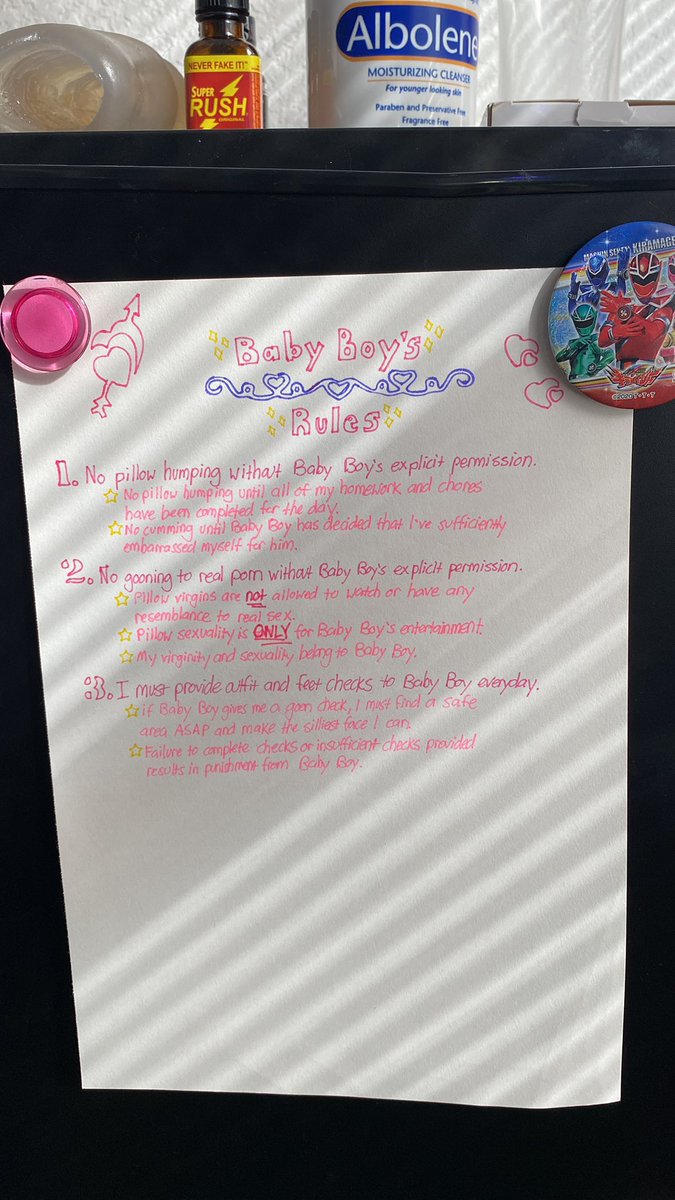 NEVER FAKE IT!™
SUPER
RUSH
ORIGINAL
Albolene
MOISTURIZING CLEANSER
For younger looking skin
Paraben and Preservative Free
Fragrance Free
KIRAMAGE
Baby Boy's
Rules
1. No pillow humping without Baby Boy's explicit permission.
No pillow humping until all of my homework and chores
have been completed for the day.
No cumming until Baby Boy has decided that I've sufficiently
embarrassed myself for him.
2. No gooning to real porn without Baby Boy's explicit permission.
Pillow virgins are not allowed to watch or have any
resemblance to real sex.
Pillow sexuality is ONLY for Baby Boy's entertainment.
My virginity and sexuality belong to Baby Boy.
3. I must provide outfit and feet checks to Baby Boy everyday.
if Baby Boy gives me a goon check, I must find a safe
area ASAP and make the silliest face I can.
Failure to complete checks or insufficient checks provided
results in punishment from Baby Boy.